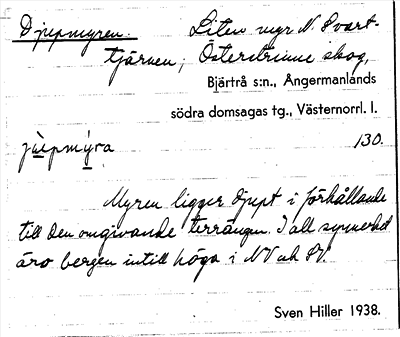 Djupmyren. Liten myr N. Svart-
tjärnen; Österstrinne skog,
Bjärtrå s:n., Ångermanlands
södra domsagas tg., Västernorrl. l.
jùpmýra 130.
Myren ligger djupt i förhållande
till den omgivande terrängen. I all synnerhet
äro bergen intill höga i NV och SV.
Sven Hiller 1938.